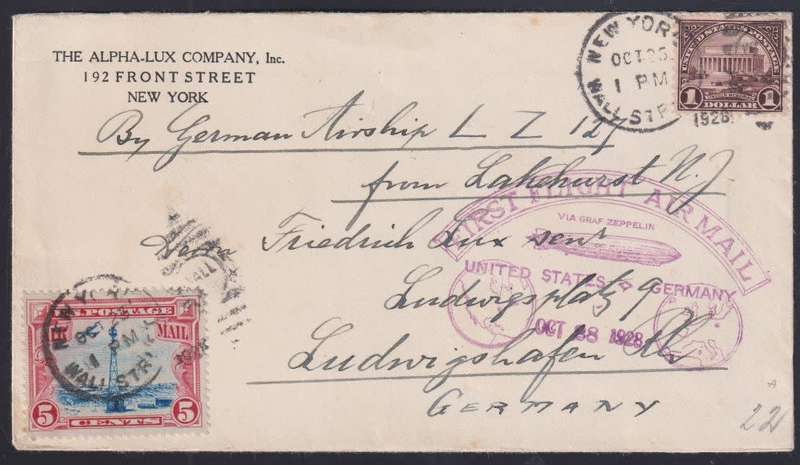 THE ALPHA-LUX COMPANY, Inc.
192 FRONT STREET
NEW YORK
NEW YORK
OCT 25
1 PM
WALL STR
1928
UNITED STATES POSTAGE
1 DOLLAR 1
By German Airship L Z 127
from Lakehurst N.J.
FIRST FLIGHT AIR MAIL
VIA GRAF ZEPPELIN
UNITED STATES GERMANY
OCT 28 1928
Herrn Friedrich Lux senr
Ludwigsplatz 9
Ludwigshafen
GERMANY
U.S. POSTAGE
AIR MAIL
NEW YORK
OCT
1 PM
WALL STR
5 CENTS 5
22